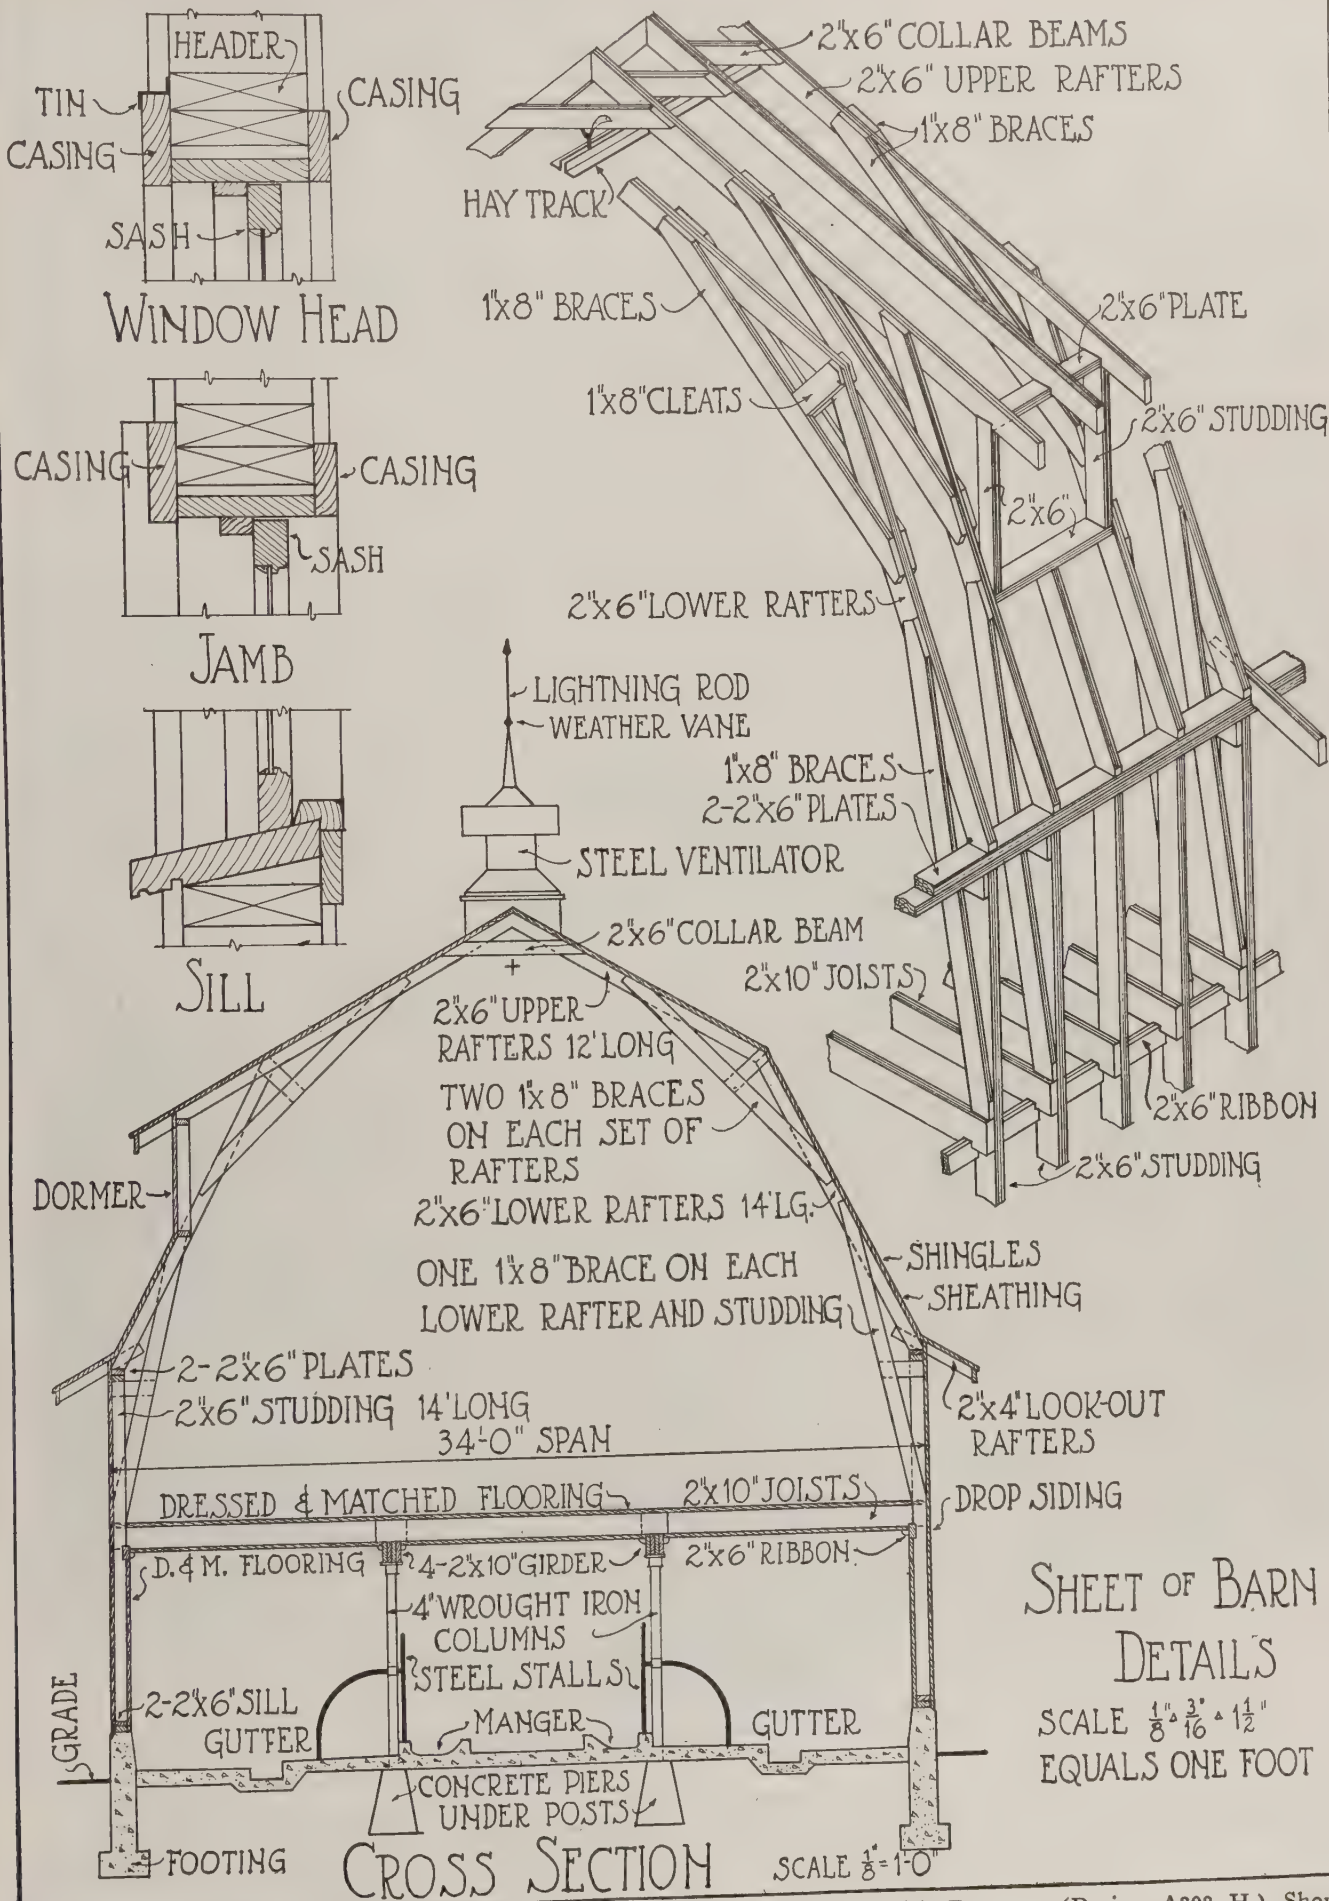 HEADER
TIN
CASING
CASING
SASH
WINDOW HEAD
CASING
CASING
SASH
JAMB
SILL
2"X6" COLLAR BEAMS
2"X6" UPPER RAFTERS
1"X8" BRACES
HAY TRACK
1"X8" BRACES
2"X6" PLATE
1"X8" CLEATS
2"X6" STUDDING
2"X6"
2"X6" LOWER RAFTERS
1"X8" BRACES
2-2"X6" PLATES
2"X10" JOISTS
2"X6" RIBBON
2"X6" STUDDING
LIGHTNING ROD
WEATHER VANE
STEEL VENTILATOR
2"X6" COLLAR BEAM
2"X6" UPPER
RAFTERS 12' LONG
TWO 1"X8" BRACES
ON EACH SET OF
RAFTERS
DORMER
2"X6" LOWER RAFTERS 14' LG.
ONE 1"X8" BRACE ON EACH
LOWER RAFTER AND STUDDING
SHINGLES
SHEATHING
2-2"X6" PLATES
2"X6" STUDDING 14' LONG
34'-0" SPAN
2"X4" LOOK-OUT
RAFTERS
DRESSED & MATCHED FLOORING
2"X10" JOISTS
DROP SIDING
D. & M. FLOORING
4-2"X10" GIRDER
2"X6" RIBBON
4" WROUGHT IRON
COLUMNS
STEEL STALLS
GRADE
2-2"X6" SILL
GUTTER
MANGER
GUTTER
CONCRETE PIERS
UNDER POSTS
FOOTING
CROSS SECTION
SCALE 1/8" = 1'-0"
SHEET OF BARN
DETAILS
SCALE 1/8" 3/16" 1 1/2"
EQUALS ONE FOOT
(Design A303-H.)